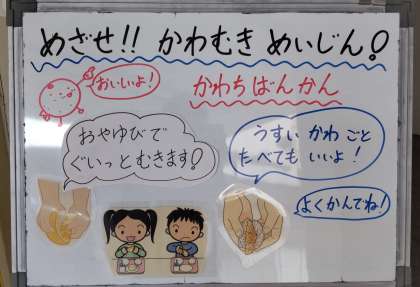 めざせ!! かわむき めいじん!
おいしいよ!
かわちばんかん
おやゆびで
ぐいっとむきます!
うすい かわ ごと
たべても いいよ!
よくかんでね!